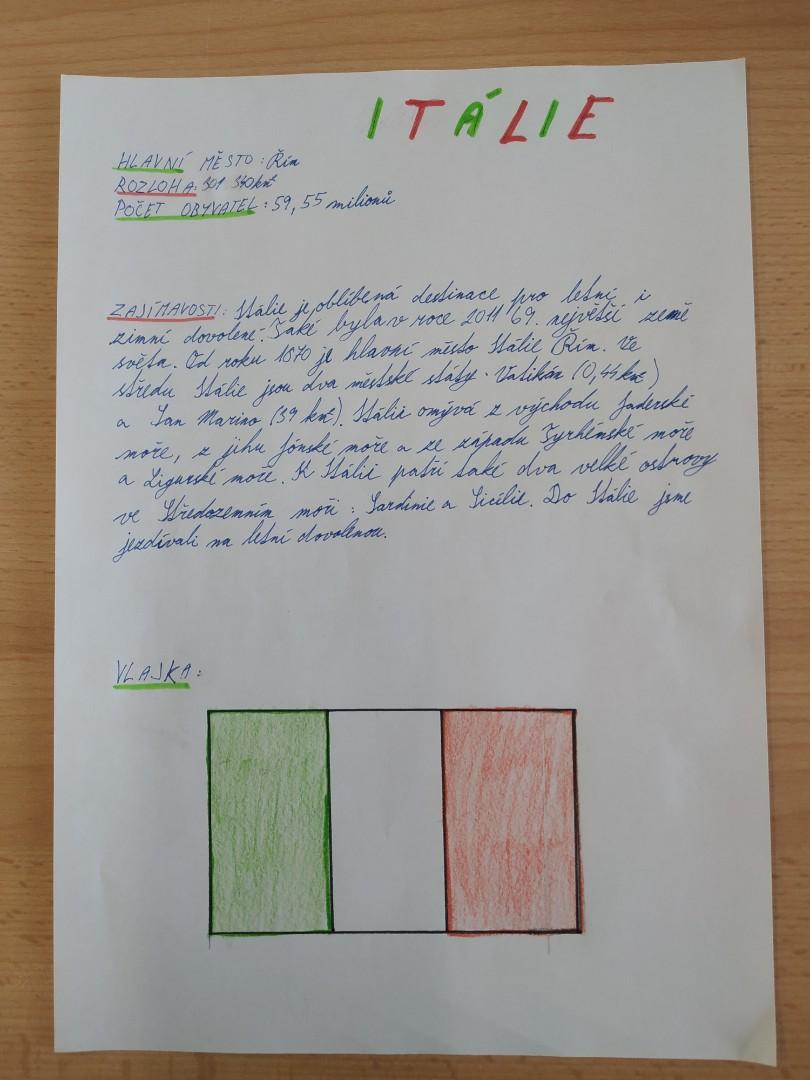 ITÁLIE
HLAVNÍ MĚSTO: Řím
ROZLOHA: 301 340 km²
POČET OBYVATEL: 59,55 milionů
ZAJÍMAVOSTI: Itálie je oblíbená destinace pro letní i
zimní dovolené. Také byla v roce 2011 69. největší země
světa. Od roku 1870 je hlavní město Itálie Řím. Ve
středu Itálie jsou dva městské státy. Vatikán (0,44 km²)
a San Marino (39 km²). Itálii omývá z východu Jaderské
moře, z jihu Jónské moře a ze západu Tyrhénské moře
a Ligurské moře. K Itálii patří také dva velké ostrovy
ve Středozemním moři: Sardinie a Sicílie. Do Itálie jsme
jezdívali na letní dovolenou.
VLAJKA: